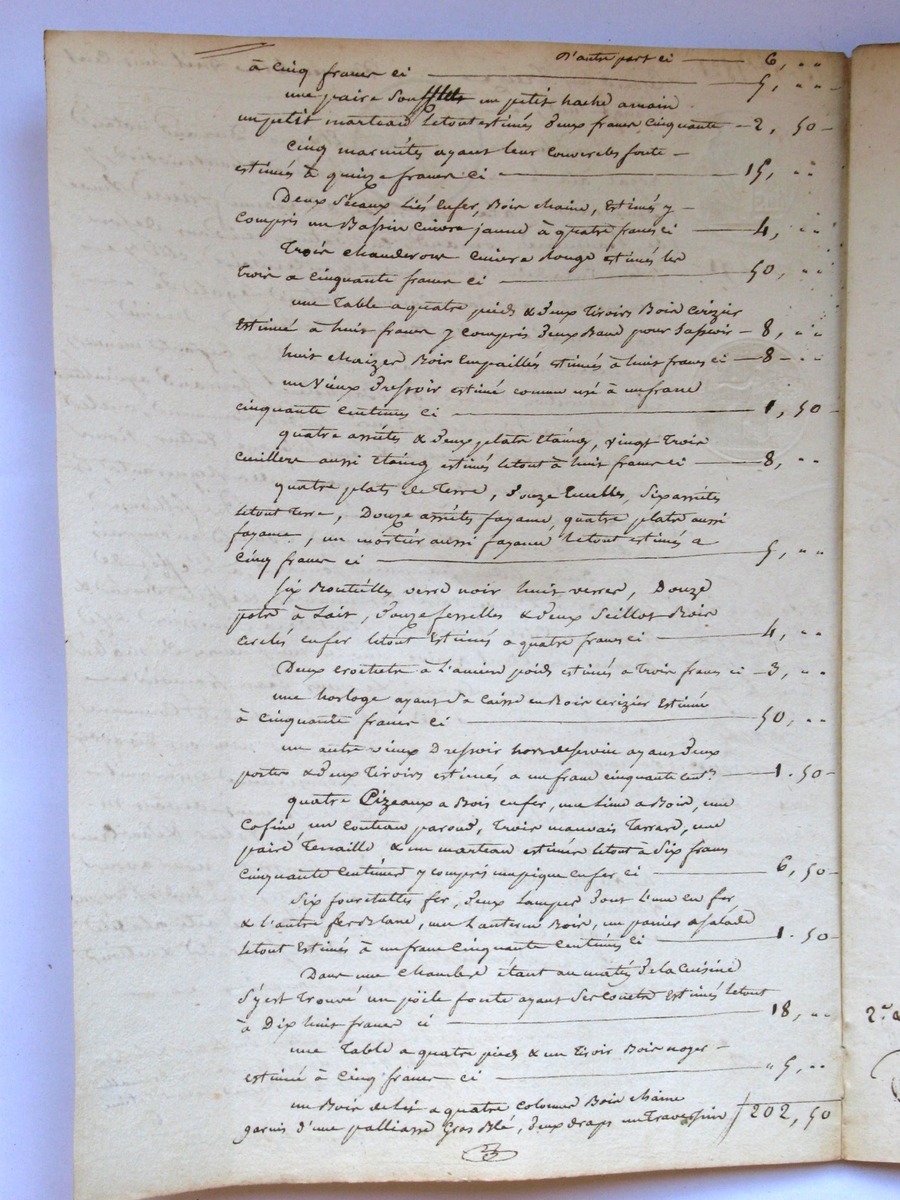 D'autre part ci — 6, ..
à Cinq francs ci — 5, ..
une paire Soufflets un petit hache amain
un petit marteau letout estimés Deux francs Cinquante — 2, 50 —
Cinq marmites ayant leur Couvercles fonte —
estimés à quinze francs Ci — 15, ..
Deux Séeaux Liés enfer, Bois chaine, Estimés y —
Compris un Bassin Cuivre jaune à quatre francs ci — 4, ..
Trois chauderons Cuivre Rouge estimés les
trois a cinquante francs ci — 50, ..
une Table a quatre pieds & Deux Tiroirs Bois Cerizier
Estimé à huit francs y compris Deux Banc pour Sassoir — 8, ..
huit chaizes Bois Empaillés estimés à huit francs ci — 8 — ..
un Vieux Dressoir estimé comme usé à un franc
cinquante Centimes Ci — 1, 50 —
quatre assiétes & Deux platre Etaing, vingt Trois
Cuilleres aussi Etaing estimés letout à huit francs ci — 8, ..
quatre plats de Terre, Douze Ecuelles, Six assiétes
letout Terre, Douze assiétes fayance, quatre platre aussi
fayance, un mortier aussi fayance letout estimés a
Cinq francs ci — 5, ..
Six Bouteilles verre noir huit verres, Douze
pots à Lait, Douze fesselles & Deux Seillot Bois
Cerclés enfer letout Estimés a quatre francs ci — 4, ..
Deux crochets à L'ancien poids estimés a Trois francs ci — 3, ..
une horloge ayant Sa Caisse en Bois Cerizier Estimée
à Cinquante francs Ci — 50, ..
un autre vieux Dressoir hors de Service ayant Deux
portes & Deux Tiroirs estimés a un franc cinquante cent.s — 1 . 50 —
quatre Cizeaux a Bois enfer, une Lime a Bois, une
Cofin, un Couteau paroud, Trois mauvais Tarrard, une
paire Tenaille & un marteau estimés letout à Six francs
Cinquante Centimes y compris un pique enfer ci — 6, 50 —
Six fourchettes fer, Deux Lampes Dont L'une en fer
& l'autre fer Blanc, un Lanterne Bois, un panier à Salade
letout Estimés à un franc Cinquante Centimes Ci — 1 . 50 —
Dans une Chambre étant au matin De la Cuisine
S'y est Trouvé un poële fonte ayant Ses Cornets Estimés letout
à Dix huit francs ci — 18, ..
une Table a quatre pieds & un Tiroir Bois noyer —
estimé à Cinq francs ci — " 5, ..
un Bois de lit a quatre Colonnes Bois chaine
garnis d'une palliasse Gros Blé, Deux draps un Traversin / 202, 50
2.e